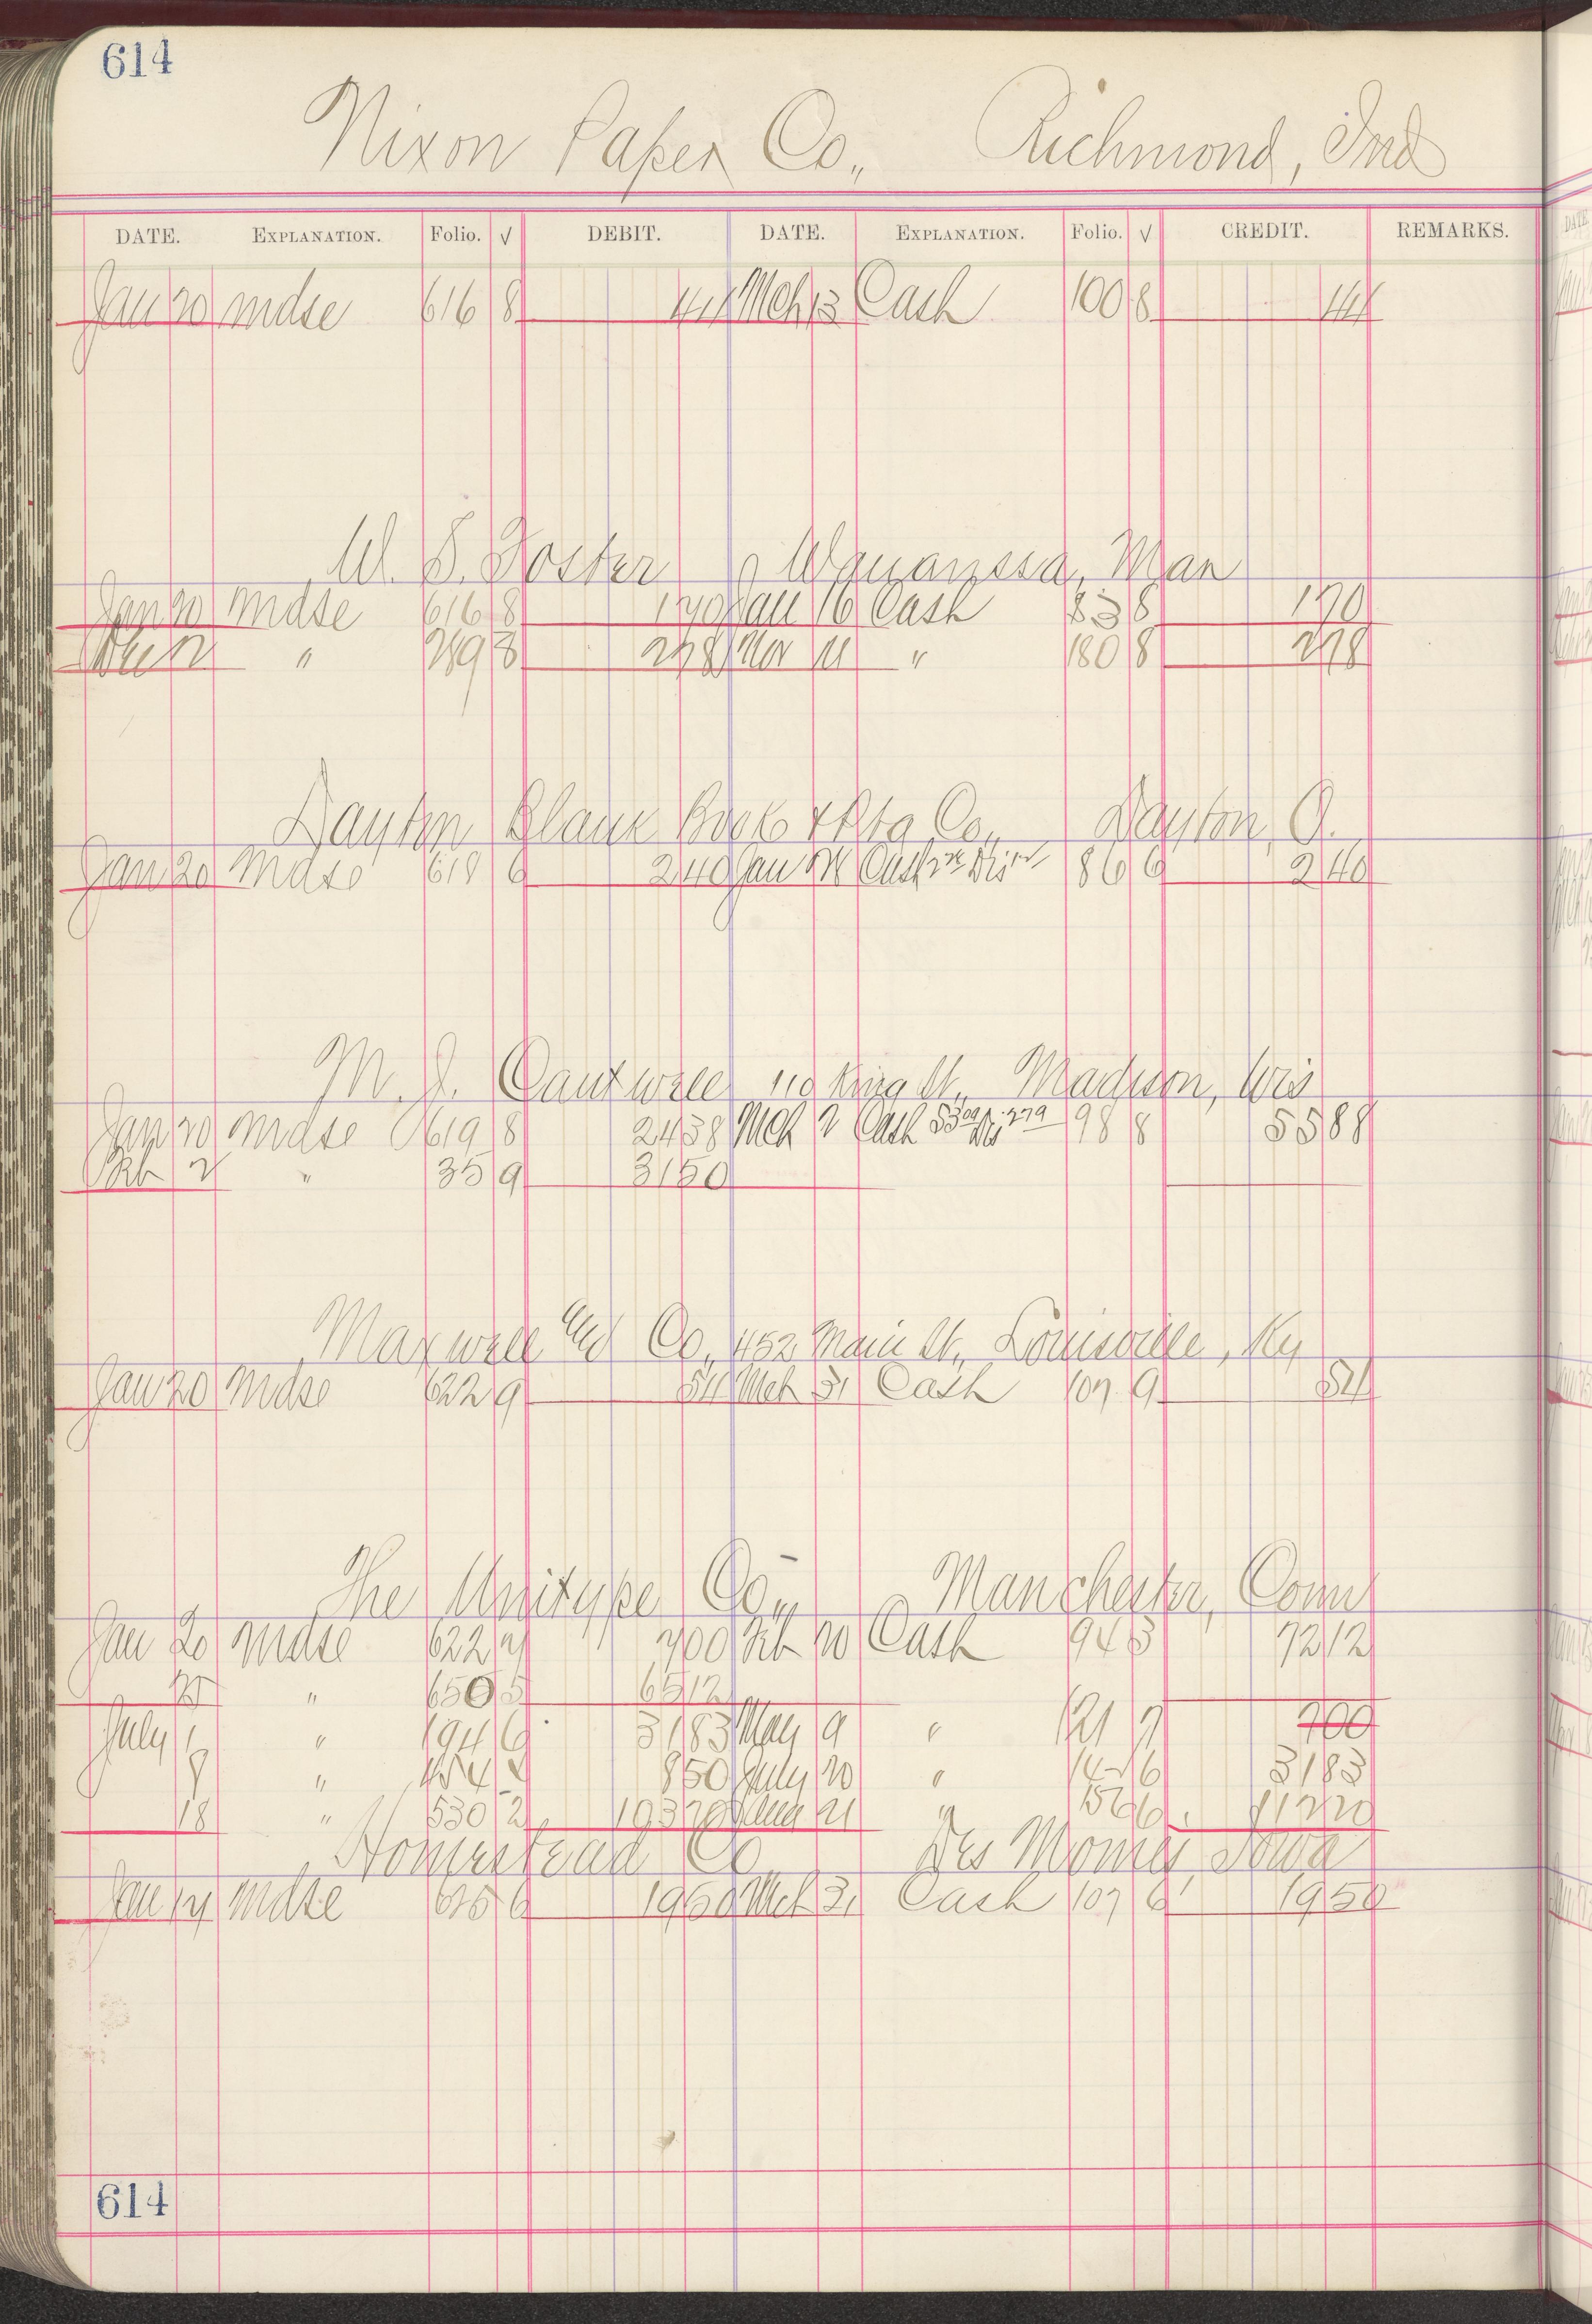 614
Nixon Paper Co., Richmond, Ind
DATE. EXPLANATION. Folio. √ DEBIT. DATE. EXPLANATION. Folio. √ CREDIT. REMARKS.
Jan 20 mdse 616 8 44 Mch 13 Cash 100 8 44
W. S. Foster, Wawanesa, Man
Jan 20 mdse 616 8 170 Jan 16 Cash 83 8 170
" 249 8 278 Nov 11 " 180 8 278
Dayton Blank Book & Ptg Co., Dayton, O.
Jan 20 mdse 618 6 240 Jan Cash 86 6 240
M. J. Cantwell 110 King St., Madison, Wis
Jan 20 mdse 619 8 2438 Mch 7 Cash 5309 Dis 279 98 8 5588
Feb 2 " 35 9 3150
Maxwell Co, 452 Main St., Louisville, Ky
Jan 20 mdse 622 9 54 Mch 31 Cash 107 9 54
The Unitype Co., Manchester, Conn
Jan 20 mdse 622 700 Feb 20 Cash 94 5 7212
" 650 5 6512
July 1 " 194 6 3183 May 9 " 121 7 700
" 850 July 20 " 6 3183
18 " 530 2 Aug 21 "
Homestead Co Des Moines Iowa
Jan mdse 6 1950 Mch 31 Cash 107 6 1950
614